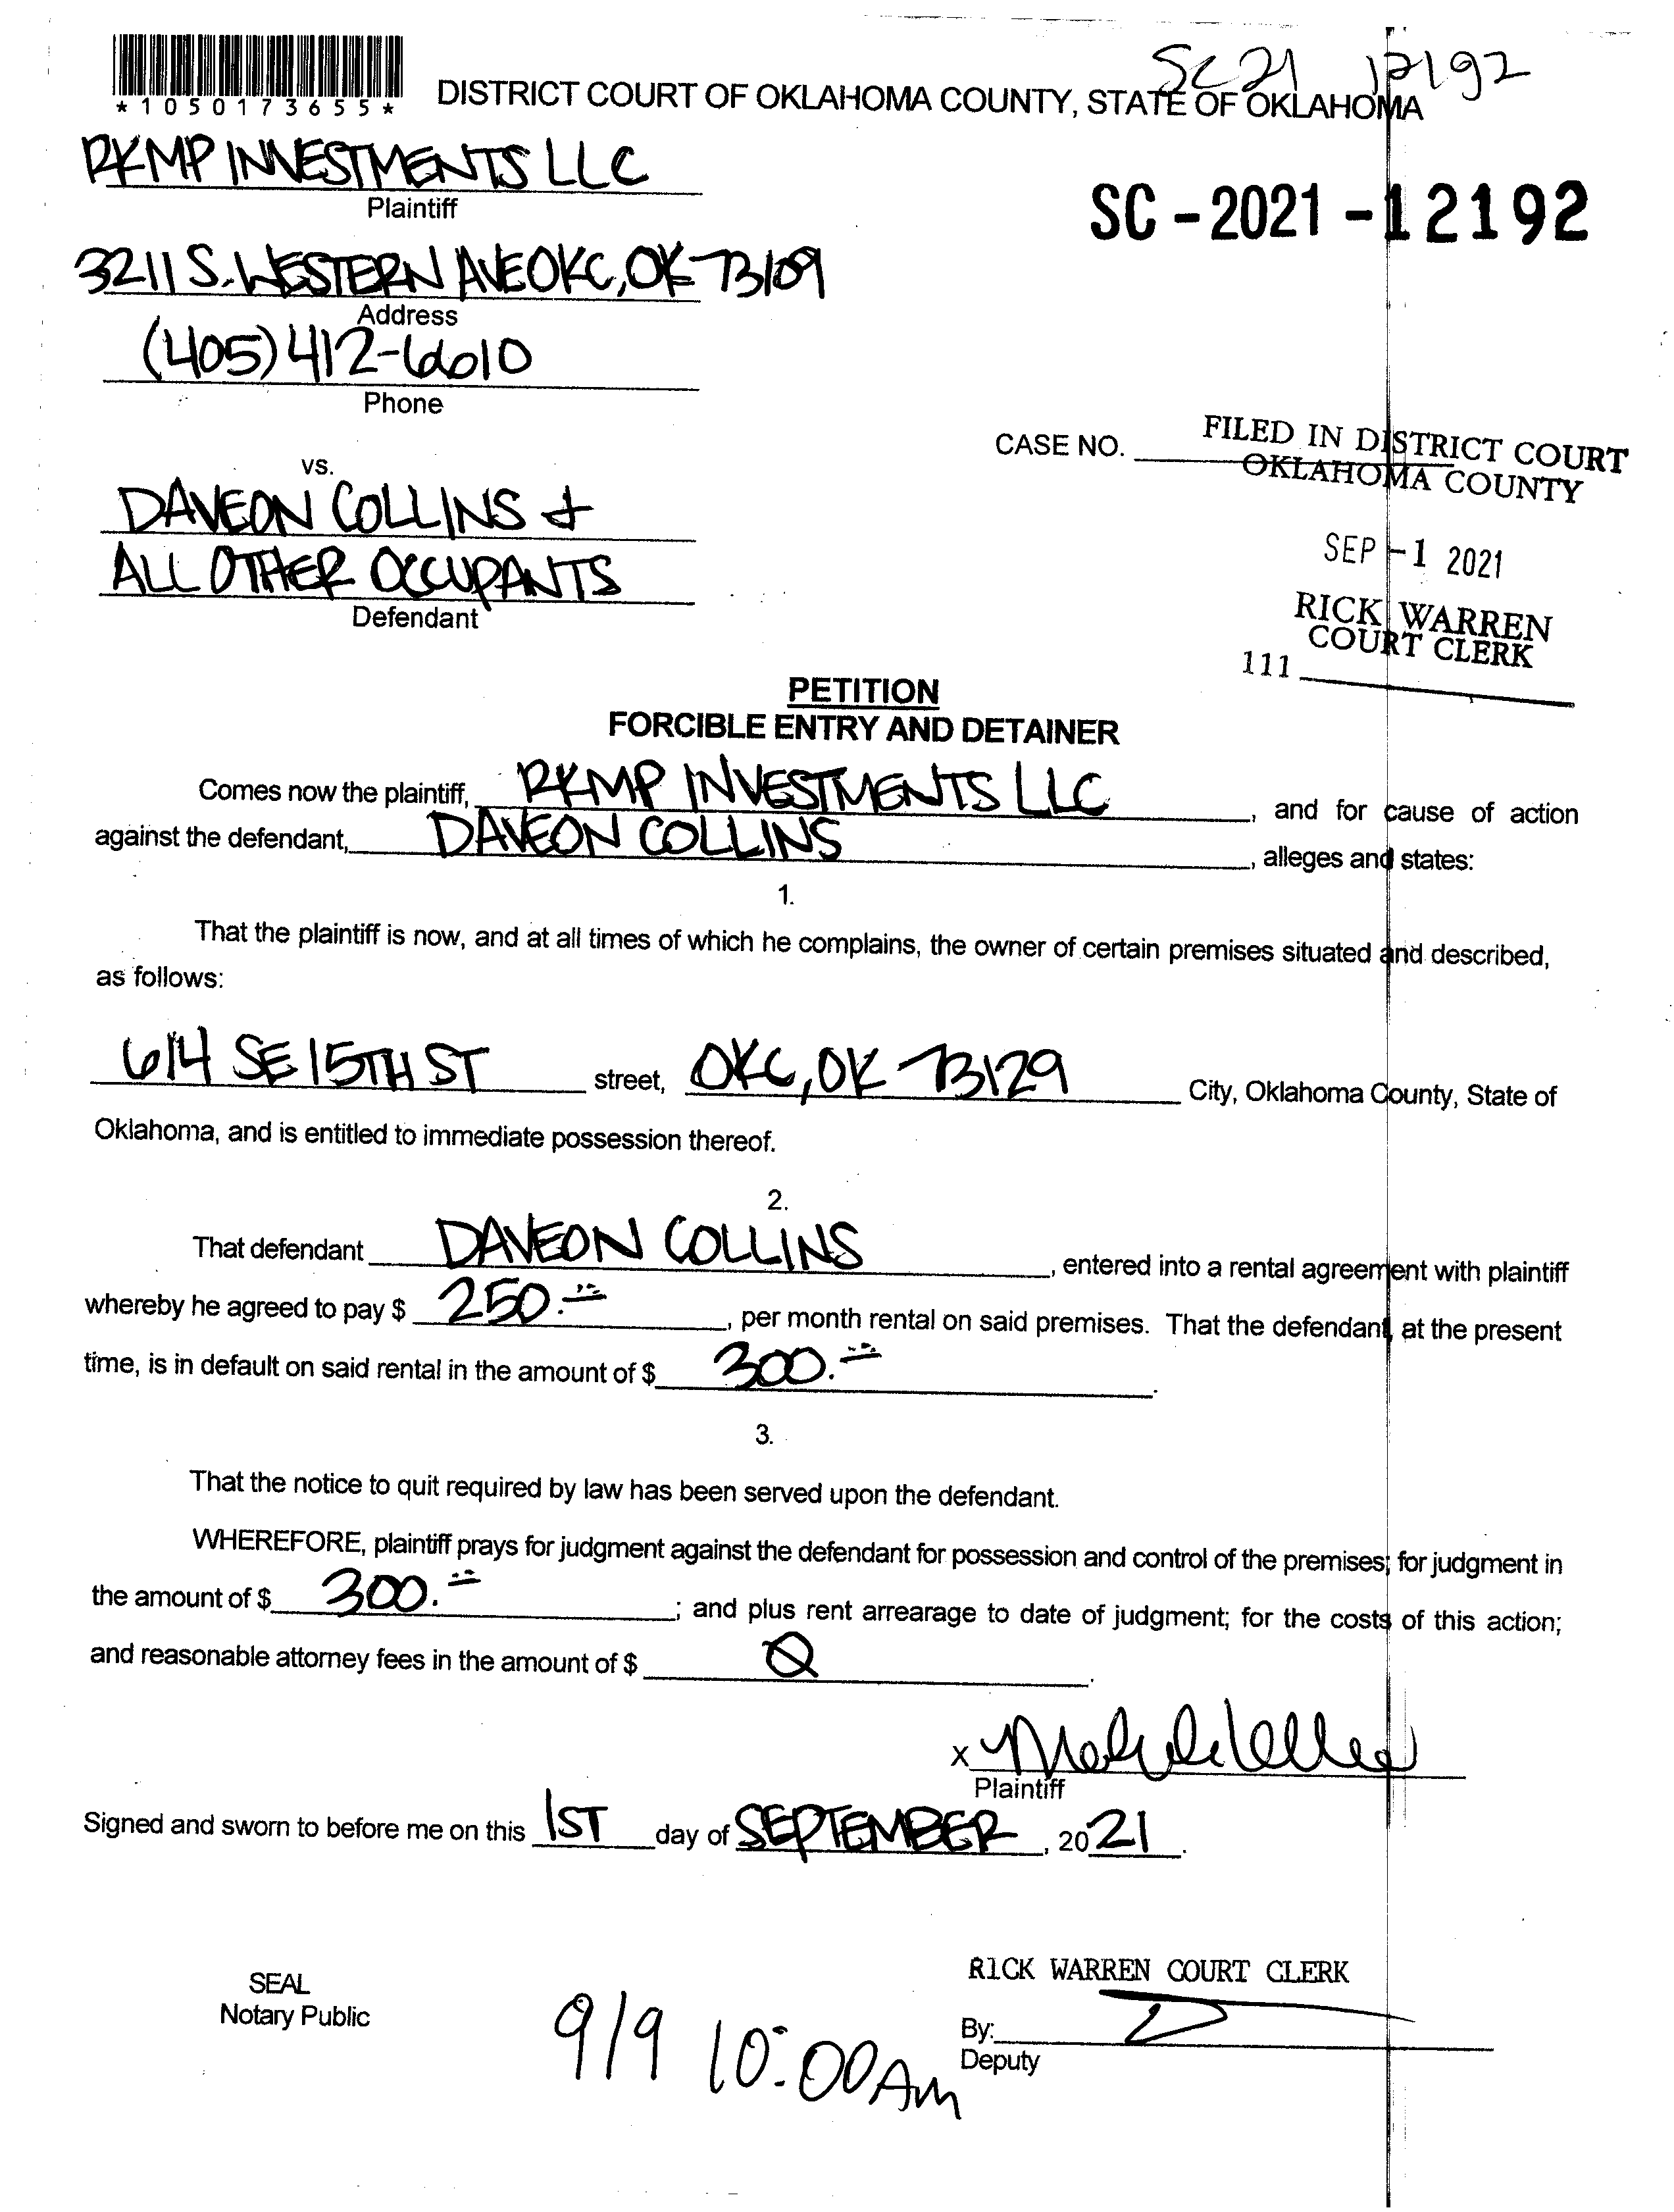 SC21 12192
*1050173655*
DISTRICT COURT OF OKLAHOMA COUNTY, STATE OF OKLAHOMA
RKMP INVESTMENTS LLC
Plaintiff
SC-2021-12192
3211 S. WESTERN AVE OKC, OK 73109
Address
(405) 412-6610
Phone
CASE NO.
FILED IN DISTRICT COURT
OKLAHOMA COUNTY
vs.
DAVEON COLLINS &
ALL OTHER OCCUPANTS
Defendant
SEP -1 2021
RICK WARREN
COURT CLERK
111
PETITION
FORCIBLE ENTRY AND DETAINER
Comes now the plaintiff, RKMP INVESTMENTS LLC, and for cause of action
against the defendant, DAVEON COLLINS, alleges and states:
1.
That the plaintiff is now, and at all times of which he complains, the owner of certain premises situated and described,
as follows:
614 SE 15TH ST street, OKC, OK 73129 City, Oklahoma County, State of
Oklahoma, and is entitled to immediate possession thereof.
2.
That defendant DAVEON COLLINS, entered into a rental agreement with plaintiff
whereby he agreed to pay $ 250.--, per month rental on said premises. That the defendant, at the present
time, is in default on said rental in the amount of $ 300.--.
3.
That the notice to quit required by law has been served upon the defendant.
WHEREFORE, plaintiff prays for judgment against the defendant for possession and control of the premises; for judgment in
the amount of $ 300.--; and plus rent arrearage to date of judgment; for the costs of this action;
and reasonable attorney fees in the amount of $ 0.
x
Plaintiff
Signed and sworn to before me on this 1ST day of SEPTEMBER, 2021.
RICK WARREN COURT CLERK
SEAL
Notary Public
By:
Deputy
9/9 10:00 Am